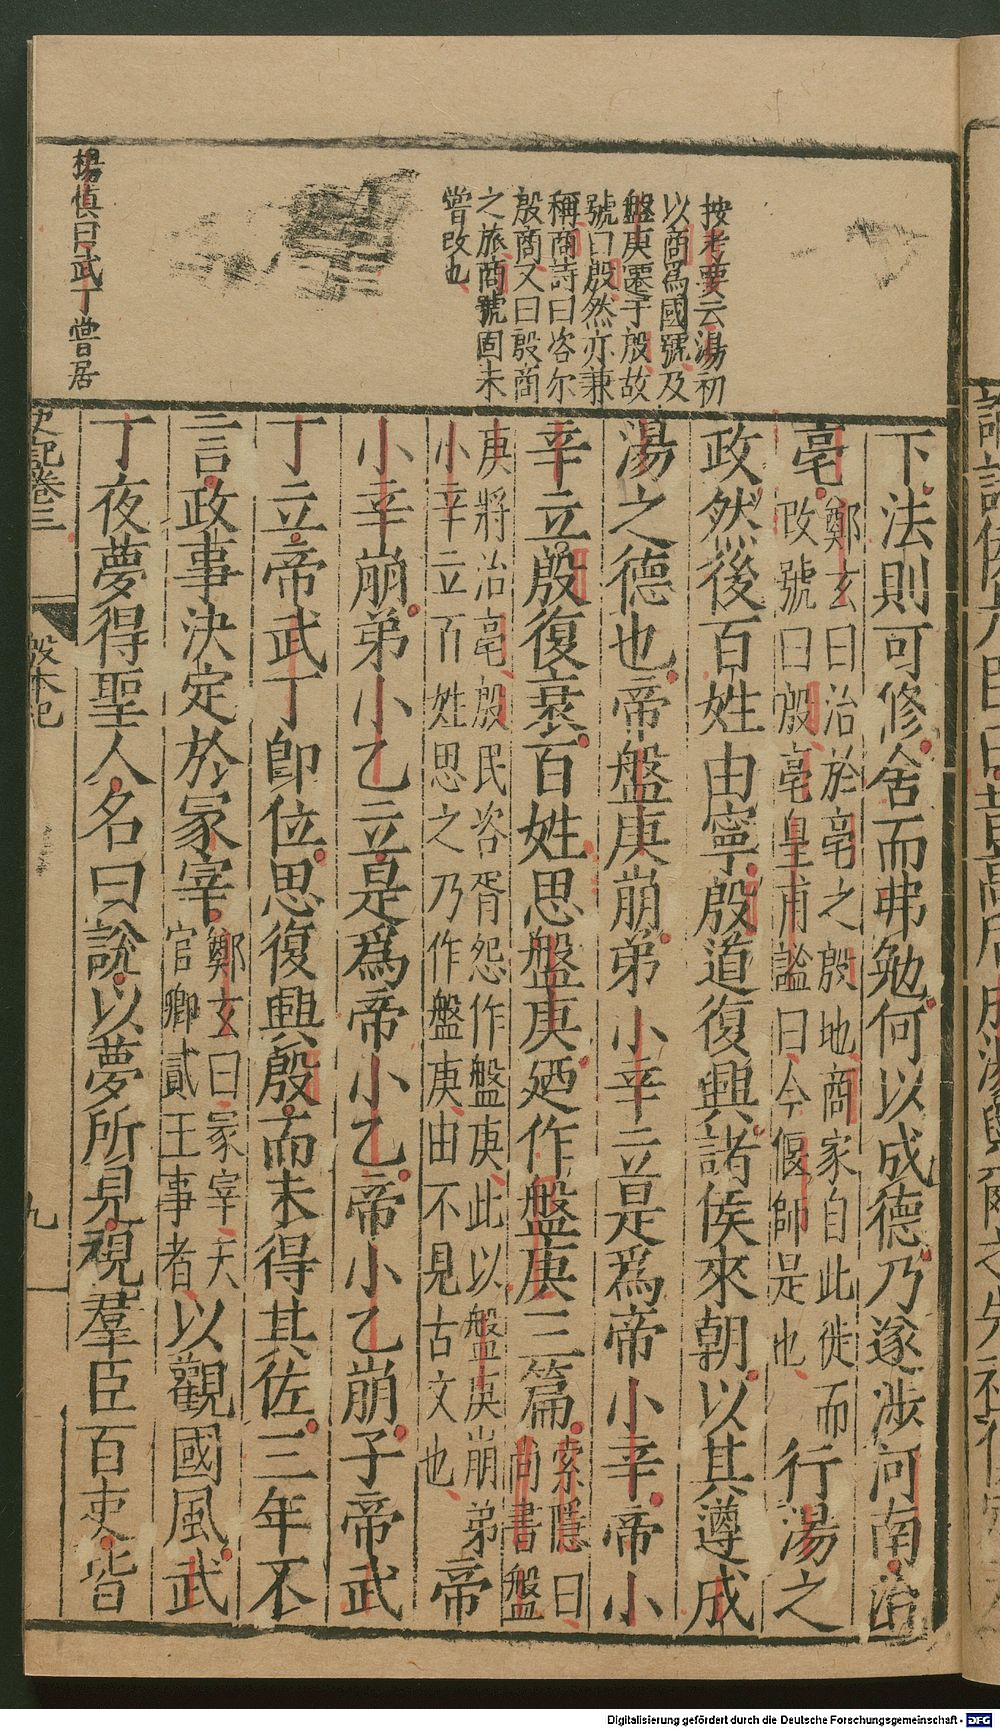 按考要云湯初
以商爲國號及
盤庚遷于殷故
號曰殷然亦兼
稱商詩曰咨尔
殷商又曰殷商
之旅商號固未
嘗改也
楊慎曰武丁嘗居
下法則可修舍而弗勉何以成德乃遂涉河南治
亳鄭玄曰治於亳之殷地商家自此徙而
改號曰殷亳皇甫謐曰今偃師是也行湯之
政然後百姓由寧殷道復興諸侯來朝以其遵成
湯之德也帝盤庚崩弟小辛立是爲帝小辛帝小
辛立殷復衰百姓思盤庚廼作盤庚三篇索隱曰
尚書盤
庚將治亳殷民咨胥怨作盤庚此以盤庚崩弟
小辛立百姓思之乃作盤庚由不見古文也帝
小辛崩弟小乙立是爲帝小乙帝小乙崩子帝武
丁立帝武丁即位思復興殷而未得其佐三年不
言政事決定於冢宰鄭玄曰冢宰天
官卿貳王事者以觀國風武
丁夜夢得聖人名曰說以夢所見視羣臣百吏皆
史記卷三
殷本紀
九
Digitalisierung gefördert durch die Deutsche Forschungsgemeinschaft - DFG